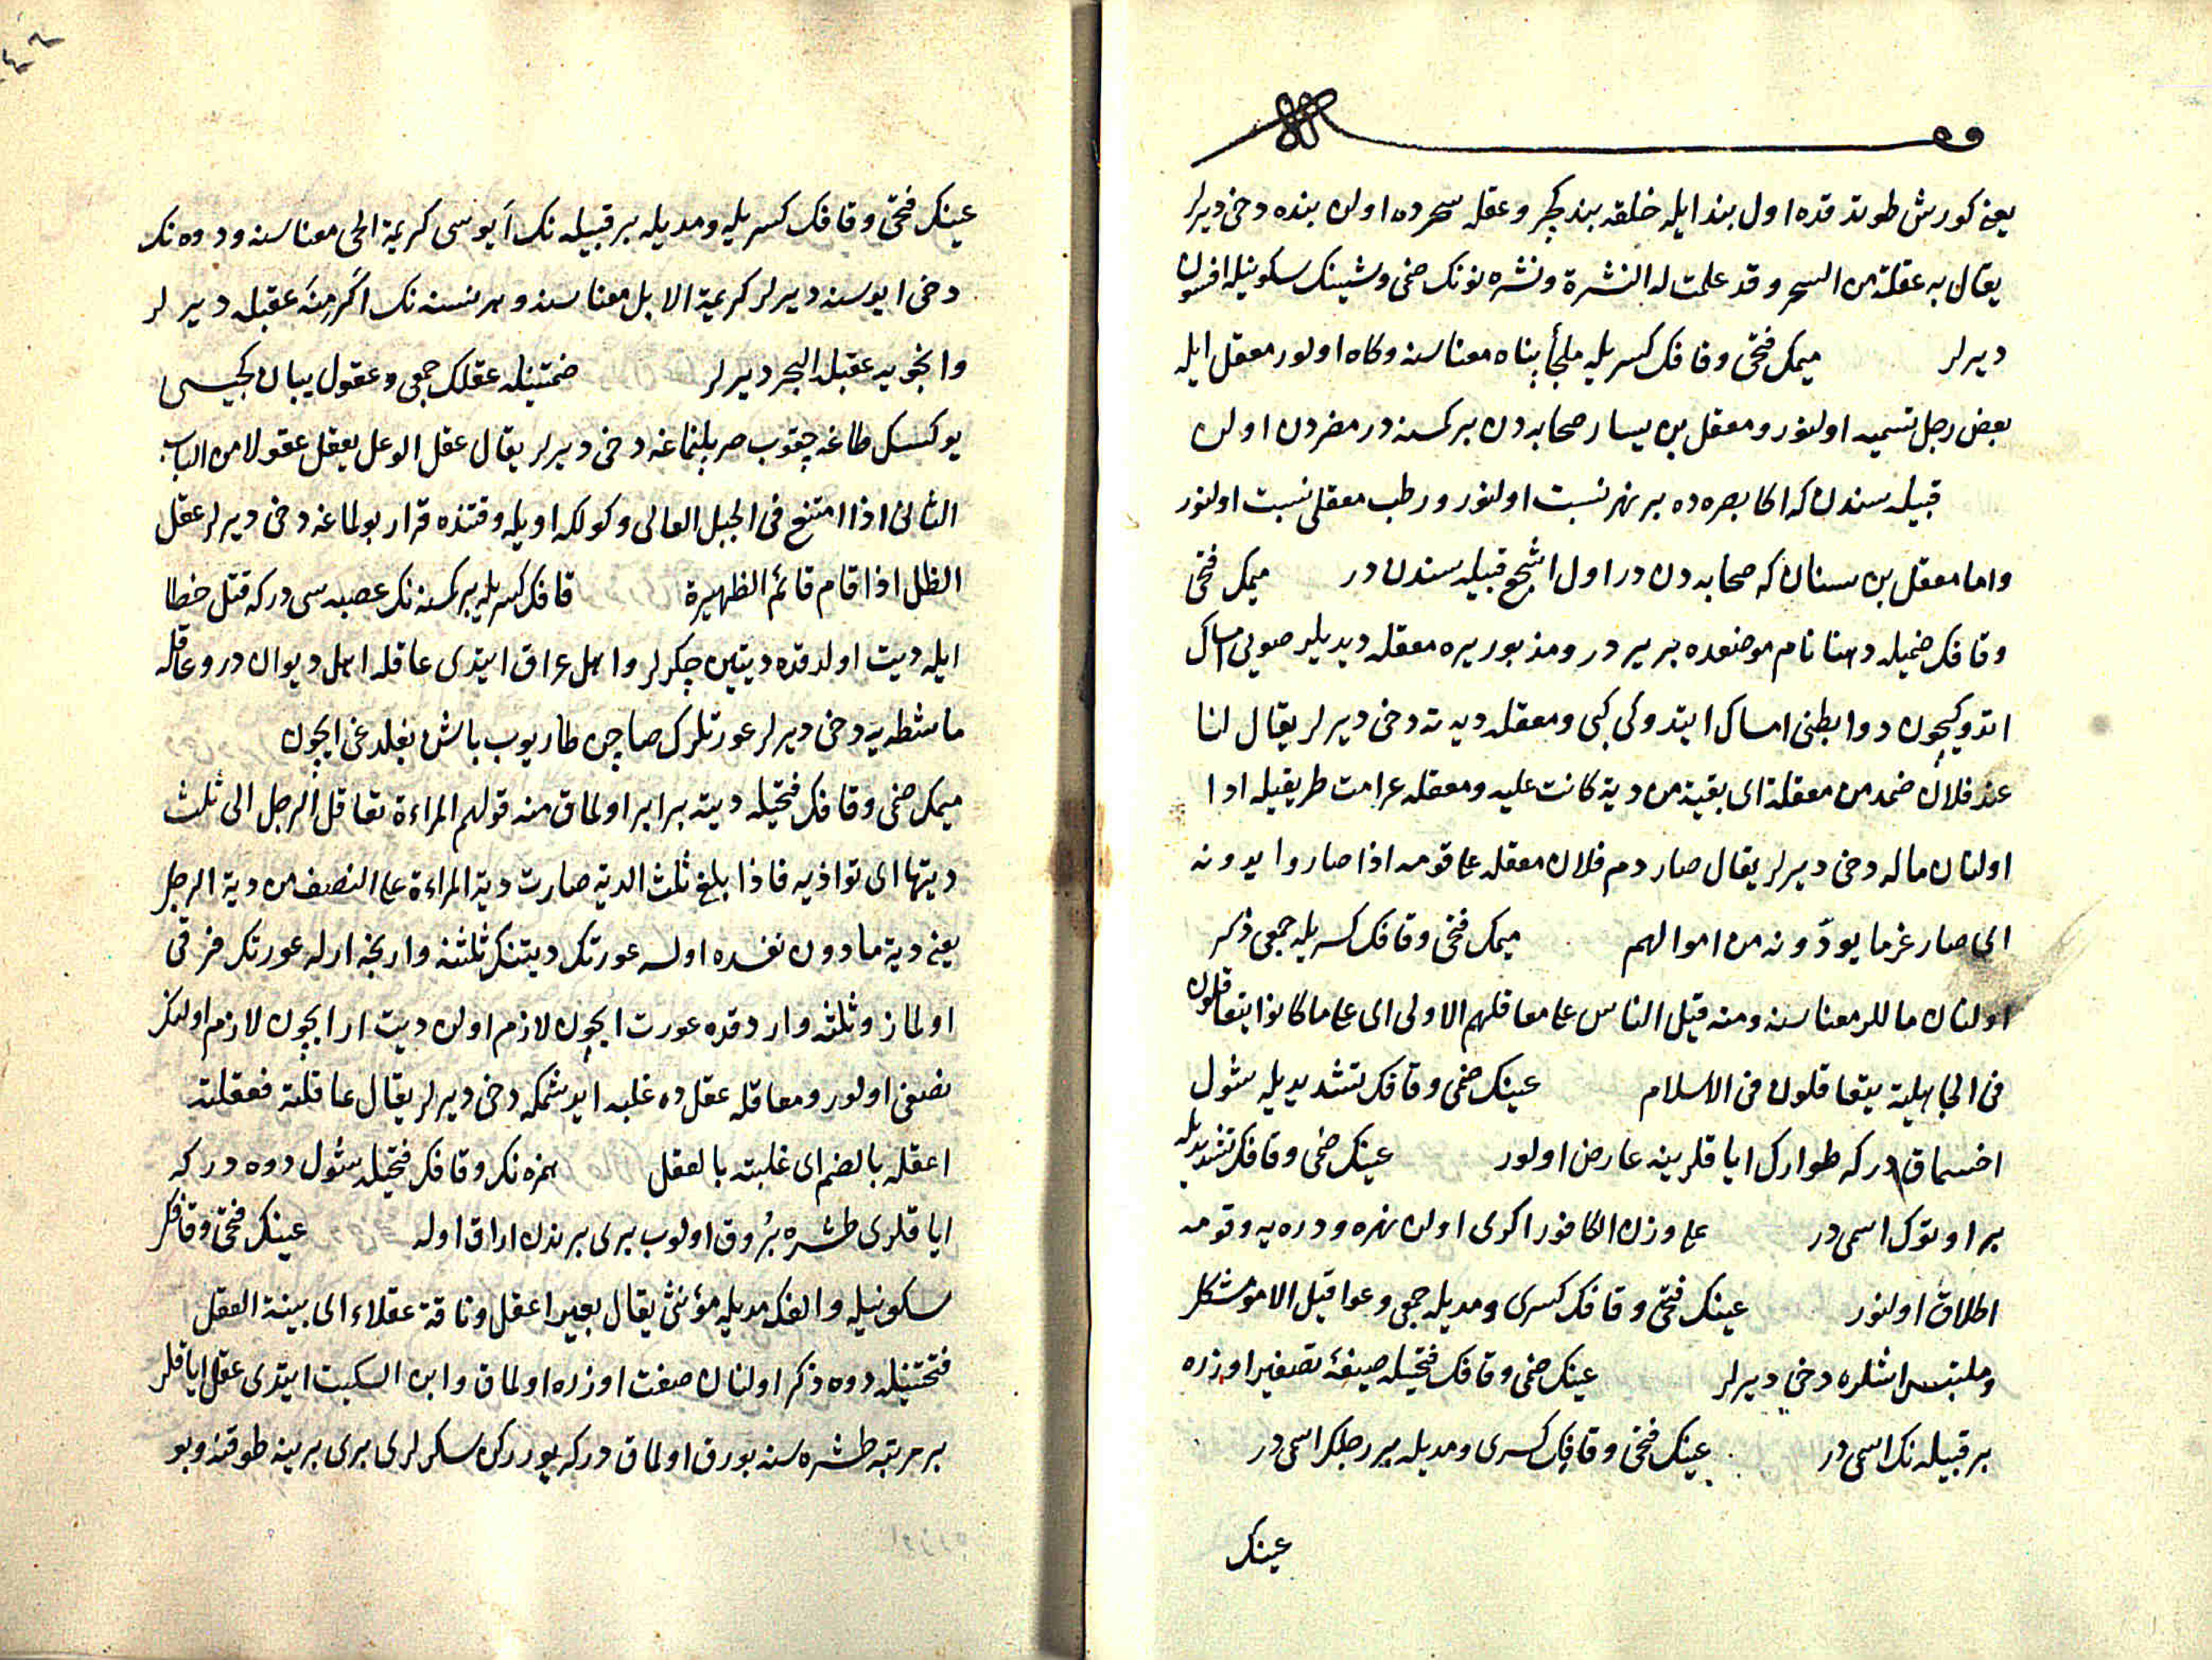 وقف
يعنى كورش طوتدقده اول بند ايله خلقه بند كچر وعقله سحرده اولان بنده دخى ديرلر
يقال به عقلة من السحر وقد علمت له النشرة ونشره نونك ضمى وشينك سكونيله افسون
ديرلر ميمك فتحى وقافك كسريله ملجأ پناه معناسنه وكاه اولور معقل ايله
بعض رجل تسميه اولنور ومعقل بن يسار صحابه دن بر كمسنه در مضردن اولان
قبيله سندن كه اكا بصره ده بر نهر نسبت اولنور ورطب معقلى نسبت اولنور
واما معقل بن سنان كه صحابه دن در اول اشجع قبيله سندن در ميمك فتحى
وقافك ضميله دهنا نام موضعده بر ير در ومذبور يره معقله ديديلر صويى امساك
اتدوكيچون دوا بطنى امساك ايتدوكى كبى ومعقله ديه ته دخى ديرلر يقال لنا
عند فلان ضمد من معقلة اى بقية من دية كانت عليه ومعقله غرامت طريقيله ادا
اولنان ماله دخى ديرلر يقال صار دم فلان معقله على قومه اذا صاروا يدونه
اى صار غرما يودّونه من اموالهم ميمك فتحى وقافك كسريله جمعى ذكر
اولنان ماللر معناسنه ومنه قيل الناس على معاقلهم الاولى اى على ما كانوا يتعاقلون
فى الجاهلية يتعاقلون فى الاسلام عينك ضمى وقافك تشديديله شول
اخسماق در كه طوارك اياقلرينه عارض اولور عينك ضمى وقافك تشديديله
بر اوتوك اسمى در على وزن الكافور اكرى اولان نهره ودره يه وقومه
اطلاق اولنور عينك فتحى وقافك كسرى ومديله جمعى وعواقيل الامور مشكل
وملتبس ايشلره دخى ديرلر عينك ضمى وقافك فتحيله صيغۀ تصغير اوزره
بر قبيله نك اسمى در عينك فتحى وقافك كسرى ومديله بر رجلك اسمى در
عينك
عينك فتحى وقافك كسريله ومديله بر قبيله نك ايوسى كريمة الحى معناسنه ودوه نك
دخى ايوسنه ديرلر كريمة الابل معناسنه وهر نسنه نك اكرمنه عقيله ديرلر
وانجويه عقيلة البحر ديرلر ضمتينله عقلك جمعى وعقول يبان كچيسى
يوكسك طاغه چقوب صربلنماغه دخى ديرلر يقال عقل الوعل يعقل عقولا من الباب
الثانى اذا امتنع فى الجبل العالى وكولكه اويله وقتنده قرار بولماغه دخى ديرلر عقل
الظل اذا قام قائم الظهيرة قافك كسريله بر كمسنه نك عصبه سى در كه قتل خطا
ايله ديت اولدقده ديتين چكرلر واهل عراق ايتدى عاقله اهل ديوان در وعاقله
ماشطه يه دخى ديرلر عورتلرك صاچن طاريوب باش بغلدغى ايچون
ميمك ضمى وقافك فتحيله ديته برابر اولماق منه قولهم المراءة تعاقل الرجل الى ثلث
ديتها اى توازيه فاذا بلغ ثلث الدية صارت دية المراءة على النصف من دية الرجل
يعنى دية مادون نفسده اولسه عورتك ديتنك ثلثنه وارنجه ارله عورتك فرقى
اولماز وثلثنه واردقده عورت ايچون لازم اولان ديت ار ايچون لازم اولنك
نصفى اولور ومعاقله عقل ده غلبه ايدشمكه دخى ديرلر يقال عاقلته فعقلته
اعقله بالضم اى غلبته بالعقل همزه نك وقافك فتحيله شول دوه در كه
اياقلرى طشره بُروق اولوب برى برندن اراق اوله عينك فتحى وقافك
سكونيله والفك مديله مؤنثى يقال بعير اعقل وناقة عقلاء اى بينة العقل
فتحتينله دوه ذكر اولنان صفت اوزره اولماق وابن السكيت ايتدى عقل اياقلر
بر مرتبه طشره سنه بورق اولماق در كه يوررکن سكرلرى برى برينه طوقنه وبو